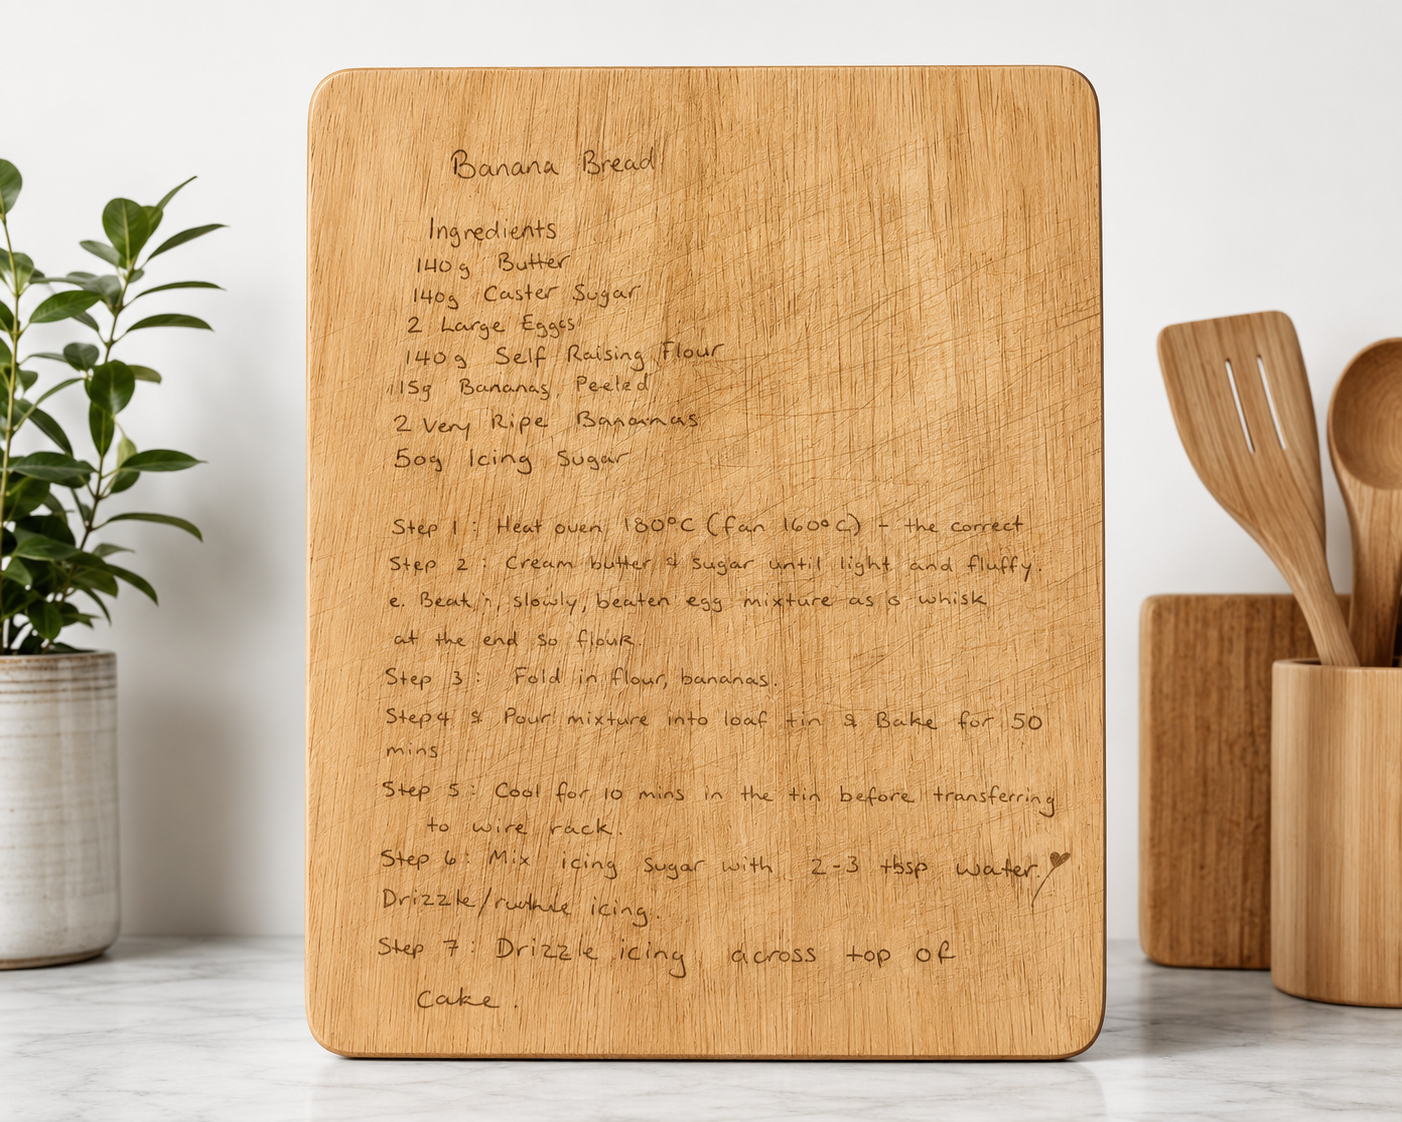 Banana Bread
Ingredients
140g Butter
140g Caster Sugar
2 Large Eggs
140g Self Raising Flour
15g Bananas, Peeled
2 Very Ripe Bananas
50g Icing Sugar
Step 1: Heat oven 180°C (fan 160°C) - the correct
Step 2: Cream butter & sugar until light and fluffy.
e. Beat, slowly, beaten egg mixture as a whisk
at the end so flour.
Step 3: Fold in flour, bananas.
Step 4 & Pour mixture into loaf tin & Bake for 50
mins
Step 5: Cool for 10 mins in the tin before transferring
to wire rack.
Step 6: Mix icing sugar with 2-3 tbsp water.
Drizzle/ icing.
Step 7: Drizzle icing across top of
cake.